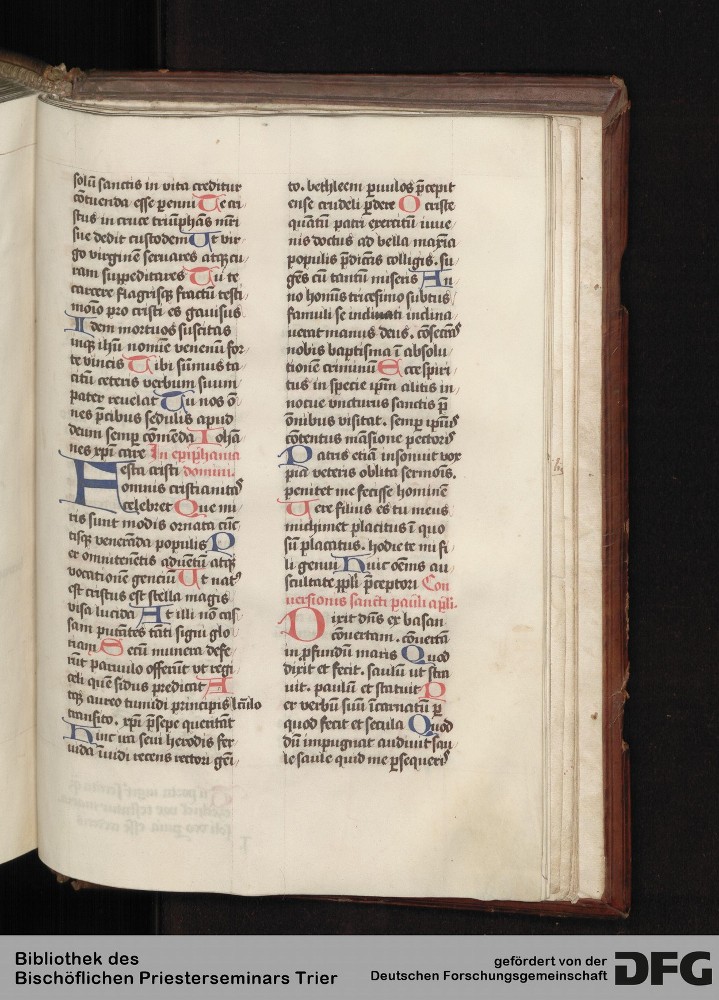 solū sanctis in vita creditur
cōtuenda esse p̱enni Te cri
stus in cruce triūphās m̄ri
sue dedit custodem Ut vir
go virginē seruares atq; cu
ram suppeditares Tu te
carcere flagrisq; fractū testi
mōio pro cristi es gauisus
Idem mortuos suscitas
inq; ihū nomīe venenū for
te vincis Tibi sūmus ta
citū ceteris verbum suum
pater reuelat Tu nos ō
nes p̄cibus sedulis apud
deum semp̱ cōmēda Iohā
nes xp̄i care In epiphania
Festa cristi domini.
omnis cristianitas
celebret Que mi
ris sunt modis ornata cūc
tisq; venerāda populis P
er omnitenētis aduētū atq;
vocationē genciū Ut nat⁹
est cristus est stella magis
visa lucida At illi nō cas
sam putātes tāti signi glo
riam Secū munera defe
rūt paruulo offerūt vt regi
celi quē sidus predicat A
tq; aureo tumidi principis lc̄ulo
transito. xp̄i p̄sepe queritāt
Hinc ira seui herodis fer
uida īuidi recens rectori gēi
to. bethleem p̱uulos p̄cepit
ense crudeli p̱dere O criste
quātū patri exercitū iuue
nis doctus ad bella maxīa
populis p̄dicās colligis. su
gēs cū tantū miseris An
no homīs tricesimo subtus
famuli se inclinati inclina
uerat manus deus. cōsecrās
nobis baptisma ī absolu
tionē criminū Ecce spiri
tus in specie ip̄m alitis in
nocue vncturus sanctis p̄
ōnibus visitat. semp̱ ip̄ius
cōtentus māsione pectoris
Patris etiā insonuit vox
pia veteris oblita sermōis.
penitet me fecisse hominē
Uere filius es tu meus
michimet placitus ī quo
sū placatus. hodie te mi fi
li genui Huic oēms au
scultate pp̱li p̄ceptori Con
uersionis sancti pauli apl̄i.
Dixit dn̄s ex basan
cōuertam. cōuertā
in p̱fundū maris Quod
dixit et fecit. saulū ut stra
uit. paulū et statuit P
er verbū suū īcarnatū p̱
quod fecit et secula Quod
dū impugnat audiuit sau
le saule quid me p̱sequeris
Bibliothek des
Bischöflichen Priesterseminars Trier
gefördert von der
Deutschen Forschungsgemeinschaft
DFG